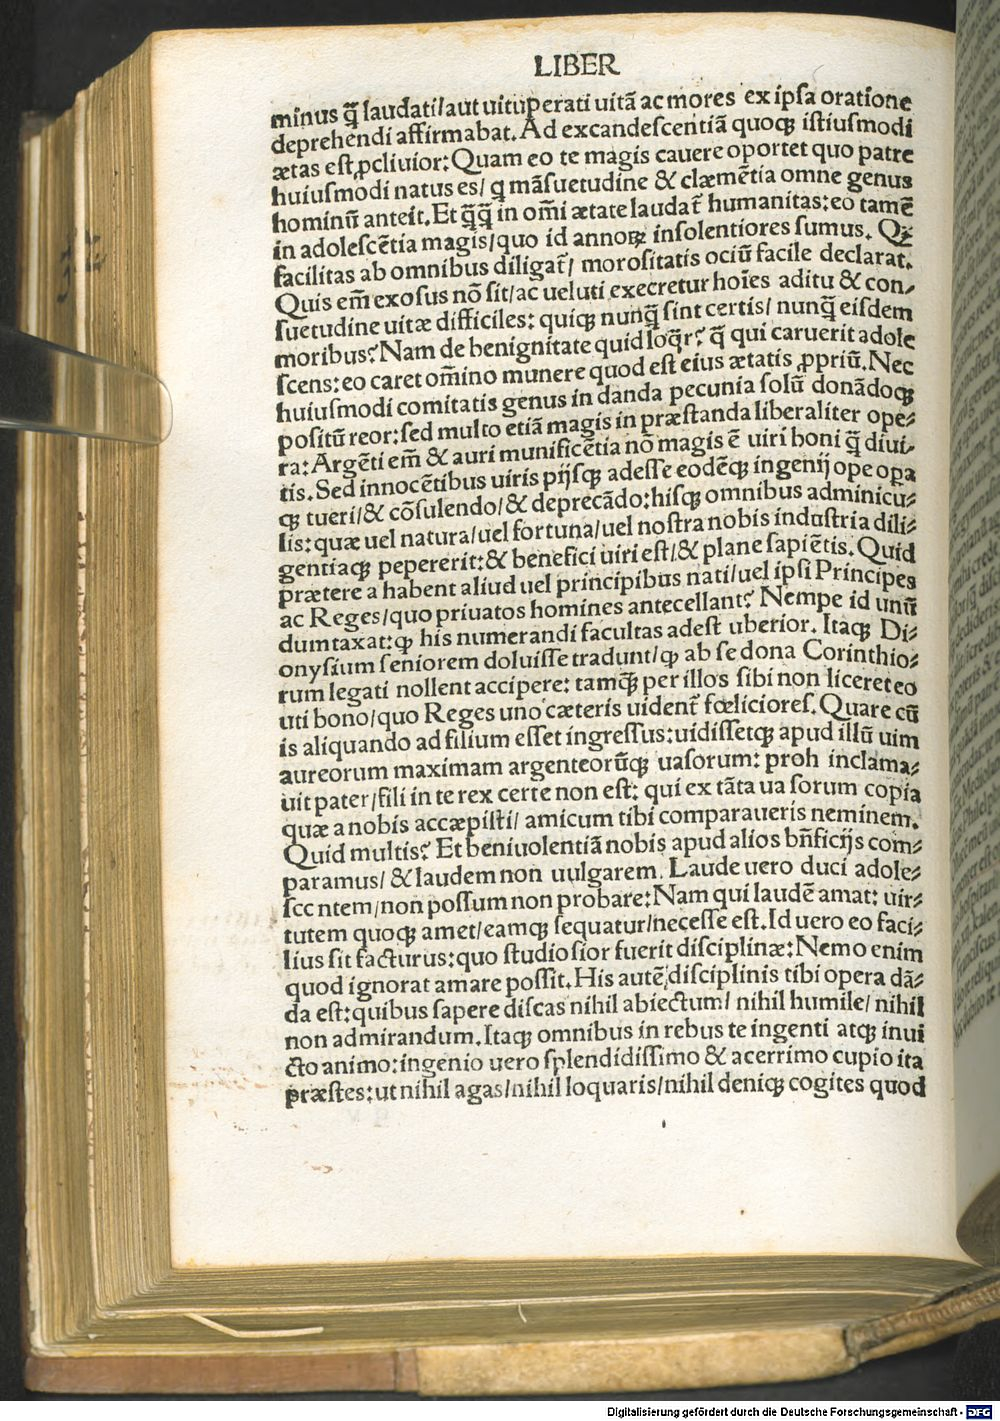 LIBER
minus q̃ laudati/aut uituperati uitã ac mores ex ipsa oratione
deprehendi affirmabat. Ad excandescentiã quoqꝫ istiusmodi
ætas est ꝓcliuior: Quam eo te magis cauere oportet quo patre
huiusmodi natus es/ q mãsuetudine & clæmẽtia omne genus
hominũ anteit. Et q̃q̃ in om̃i ætate laudat᷑ humanitas: eo tamẽ
in adolescẽtia magis/quo id annoꝝ insolentiores sumus. Qꝫ
facilitas ab omnibus diligat᷑/ morositatis ociũ facile declarat.
Quis em̃ exosus nõ sit/ac ueluti execretur hoĩes aditu & con⸗
suetudine uitæ difficiles: quiqꝫ nunq̃ sint certis/ nunq̃ eisdem
moribus? Nam de benignitate quid loq̃r? q̃ qui caruerit adole
scens: eo caret om̃ino munere quod est eius ætatis ꝓpriũ. Nec
huiusmodi comitatis genus in danda pecunia solũ donãdoqꝫ
positũ reor: sed multo etiã magis in præstanda liberaliter ope⸗
ra: Argẽti em̃ & auri munificẽtia nõ magis ẽ uiri boni q̃ diui⸗
tis. Sed innocẽtibus uiris pijsqꝫ adesse eodẽqꝫ ingenij ope opa
qꝫ tueri/& cõsulendo/& deprecãdo: hisqꝫ omnibus adminicu⸗
lis: quæ uel natura/uel fortuna/uel nostra nobis industria dili⸗
gentiaqꝫ pepererit: & benefici uiri est/& plane sapiẽtis. Quid
prætere a habent aliud uel principibus nati/uel ipsi Principes
ac Reges/quo priuatos homines antecellant? Nempe id unũ
dumtaxat: ꝙ his numerandi facultas adest uberior. Itaqꝫ Di⸗
onysium seniorem doluisse tradunt/ꝙ ab se dona Corinthio⸗
rum legati nollent accipere: tamq̃ per illos sibi non liceret eo
uti bono/quo Reges uno cæteris uident᷑ fœliciores. Quare cũ
is aliquando ad filium esset ingressus: uidissetqꝫ apud illũ uim
aureorum maximam argenteorũqꝫ uasorum: proh inclama⸗
uit pater/fili in te rex certe non est: qui ex tãta ua sorum copia
quæ a nobis accæpisti/ amicum tibi comparaueris neminem.
Quid multis? Et beniuolentiã nobis apud alios bñficijs com⸗
paramus/ & laudem non uulgarem. Laude uero duci adole⸗
scc ntem/non possum non probare: Nam qui laudẽ amat: uir⸗
tutem quoqꝫ amet/eamqꝫ sequatur/necesse est. Id uero eo faci⸗
lius sit facturus: quo studio sior fuerit disciplinæ: Nemo enim
quod ignorat amare possit. His autẽ disciplinis tibi opera dã⸗
da est: quibus sapere discas nihil abiectum/ nihil humile/ nihil
non admirandum. Itaqꝫ omnibus in rebus te ingenti atqꝫ inui
cto animo: ingenio uero splendidissimo & acerrimo cupio ita
præstes: ut nihil agas/nihil loquaris/nihil deniqꝫ cogites quod
Digitalisierung gefördert durch die Deutsche Forschungsgemeinschaft - DFG